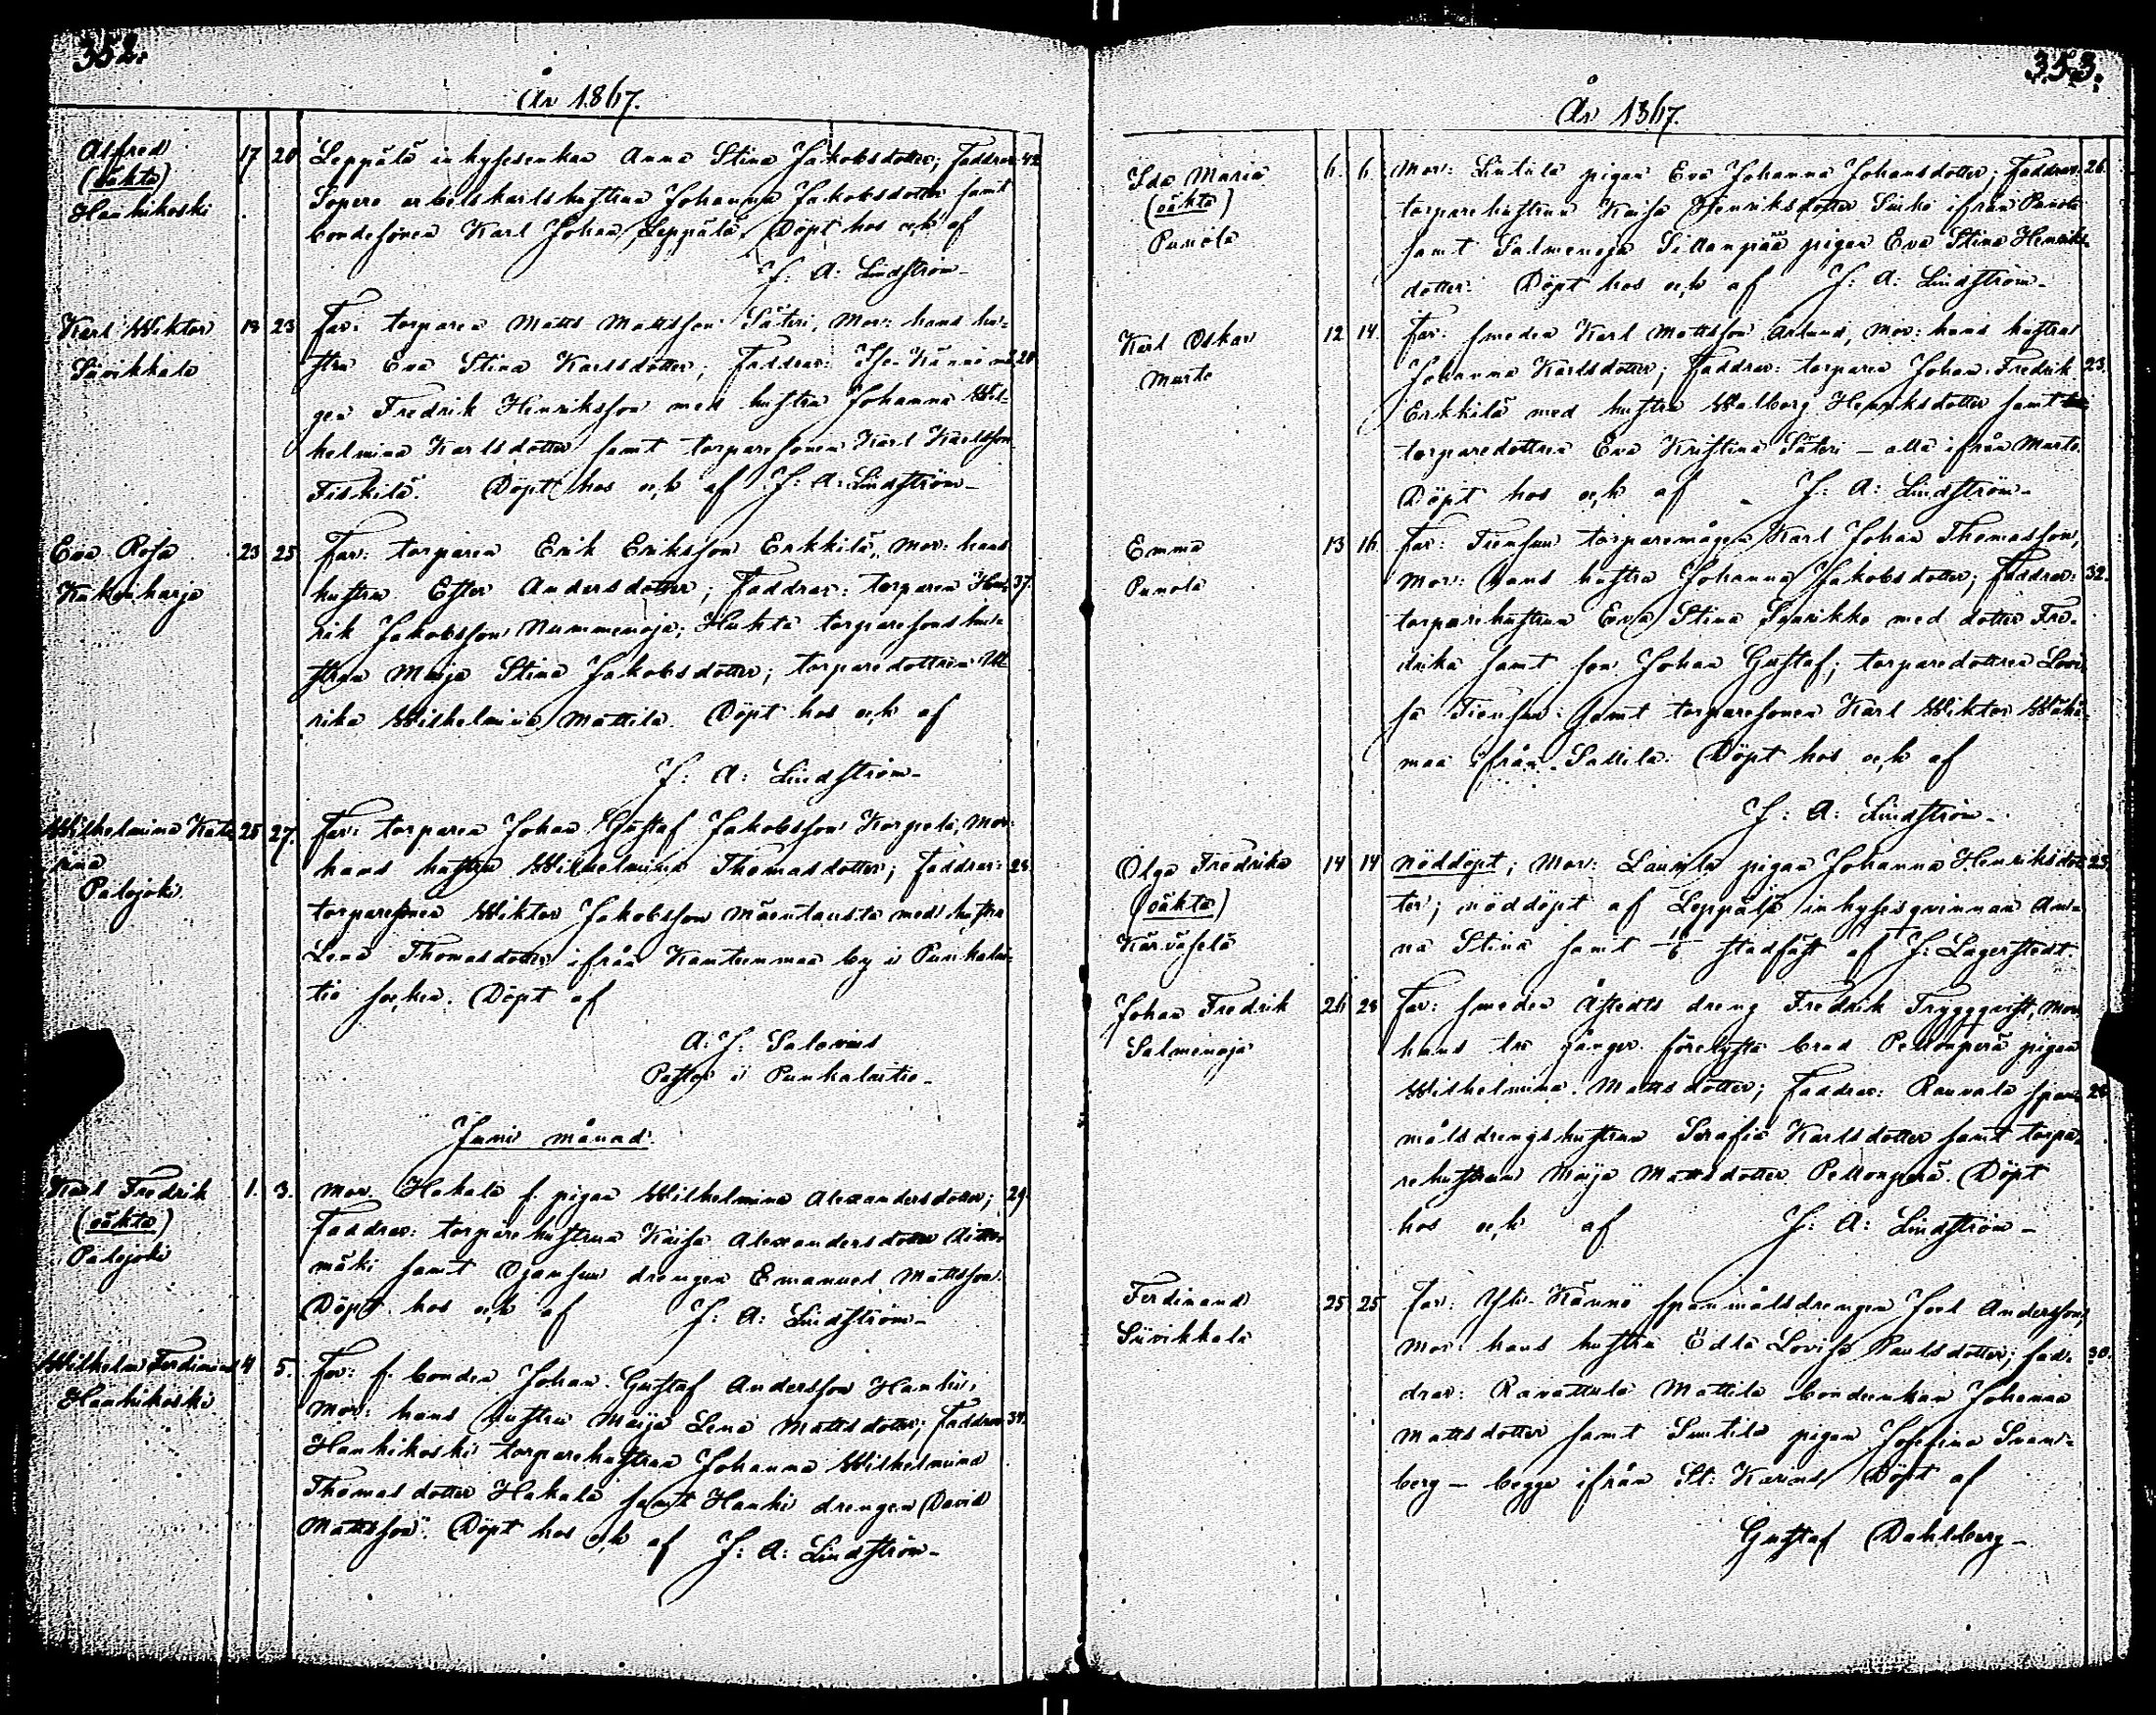 352.
År 1867.
Alfred 17 20 Leppälä inhysesenkan Anna Stina Jakobsdotter; Faddrar: 42
(oäkta) Sopero arbetskarlshustrun Johanna Jakobsdotter samt
Hanhikoski bondesonen Karl Johan Leppälä. Döpt hos och af
J: A: Lindström-
Karl Wiktor 19 23 Far: torparen Matts Mattsson Säteri, Mor: hans hu-
Suvikkala stru Eva Stina Karlsdotter; Faddrar: Iso-Kännö må- 28
gen Fredrik Henriksson med hustru Johanna Wil-
helmina Karlsdotter samt torparesonen Karl Karlsson
Fiskilä. Döpt hos och af J: A: Lindström-
Eva Rosa 23 25 Far: torparen Erik Eriksson Erkkilä, Mor: hans
Kukonharja hustru Ester Andersdotter; Faddrar: torparen Hen- 37.
rik Jakobsson Nummenoja; Huhta torparesons hu-
strun Maja Stina Jakobsdotter; torparedottren Ul-
rika Wilhelmina Mattila. Döpt hos och af
J: A: Lindström-
Wilhelmina Kata- 25 27. Far: torparen Johan Gustaf Jakobsson Korpela, Mor:
rina hans hustru Wilhelmina Thomasdotter; Faddrar: 28
Palojoki torparesonen Wiktor Jakobsson Mäentausta med hustru
Lena Thomasdotter ifrån Kanteenmaa by i Punkalai-
tio socken. Döpt af
A: J: Salovius
Pastor i Punkalaitio-
Juni månad.
Karl Fredrik 1. 3. Mor: Hakala f. pigan Wilhelmina Alexandersdotter; 29.
(oäkta) Faddrar: torparehustrun Kaisa Alexandersdotter
Palojoki mäki samt Ojansuu drengen Emanuel Mattsson.
Döpt hos och af J: A: Lindström-
Wilhelm Ferdinand 4 5. Far: f. bonden Johan Gustaf Andersson Hanhi,
Hanhikoski Mor: hans hustru Maija Lena Mattsdotter; Faddrar: 34.
Hanhikoski torparehustrun Johanna Wilhelmina
Thomasdotter Hakala samt Hanhi drengen David
Mattsson. Döpt hos och af J: A: Lindström-
353.
År 1867.
Ida Maria 6. 6 Mor: Lintula pigan Eva Johanna Johansdotter; Faddrar: 26.
(oäkta) torparehustrun Kaisa Henriksdotter ifrån Punola
Punola samt Salmenoja Sillanpää pigan Eva Stina Henriks-
dotter. Döpt hos och af J: A: Lindström-
Karl Oskar 12 14. Far: smeden Karl Mattsson Aslund, Mor: hans hustru
Murto Johanna Karlsdotter; Faddrar: torparen Johan Fredrik 23.
Erkkilä med hustru Walborg Henriksdotter samt
torparedottren Eva Kristina Säteri - alla ifrån Murto.
Döpt hos och af J: A: Lindström-
Emma 13 16 Far: Tiensuu torparemågen Karl Johan Thomasson,
Punola Mor: hans hustru Johanna Jakobsdotter; Faddrar: 32.
torparehustrun Eva Stina med dotter Fre-
drika samt son Johan Gustaf; torparedottren Lovi-
sa Tiensuu samt torparesonen Karl Wiktor Wähä-
maa ifrån Sallila. Döpt hos och af
J: A: Lindström-
Olga Fredrika 14 14 Nöddöpt; Mor: Laurila pigan Johanna Henriksdot- 23
(oäkta) ter; nöddöpt af Leppälä inhysesqvinnan An-
Karvasela na Stina samt 16/6 stadfäst af J: Lagerstedt.
Johan Fredrik 26 28 Far: smeden Åstedts dreng Fredrik Tryggqvist, Mor:
Salmenoja hans tre gånger förelysta brud Peltonperä pigan
Wilhelmina Mattsdotter; Faddrar: Rauvala span- 28
målsdrengshustrun Serafia Karlsdotter samt torpa-
rehustrun Maija Mattsdotter Peltonperä. Döpt
hos och af J: A: Lindström-
Ferdinand 25 25 Far: Yli-Kännö spanmålsdrengen Joel Andersson,
Suvikkala Mor: hans hustru Edla Lovisa Paulsdotter; fad- 30.
drar: Ravattula Mattila bondeenkan Johanna
Mattsdotter samt Suutila pigan Josefina Svan-
berg - begge ifrån St: Karins. Döpt af
Gustaf Dahlberg-